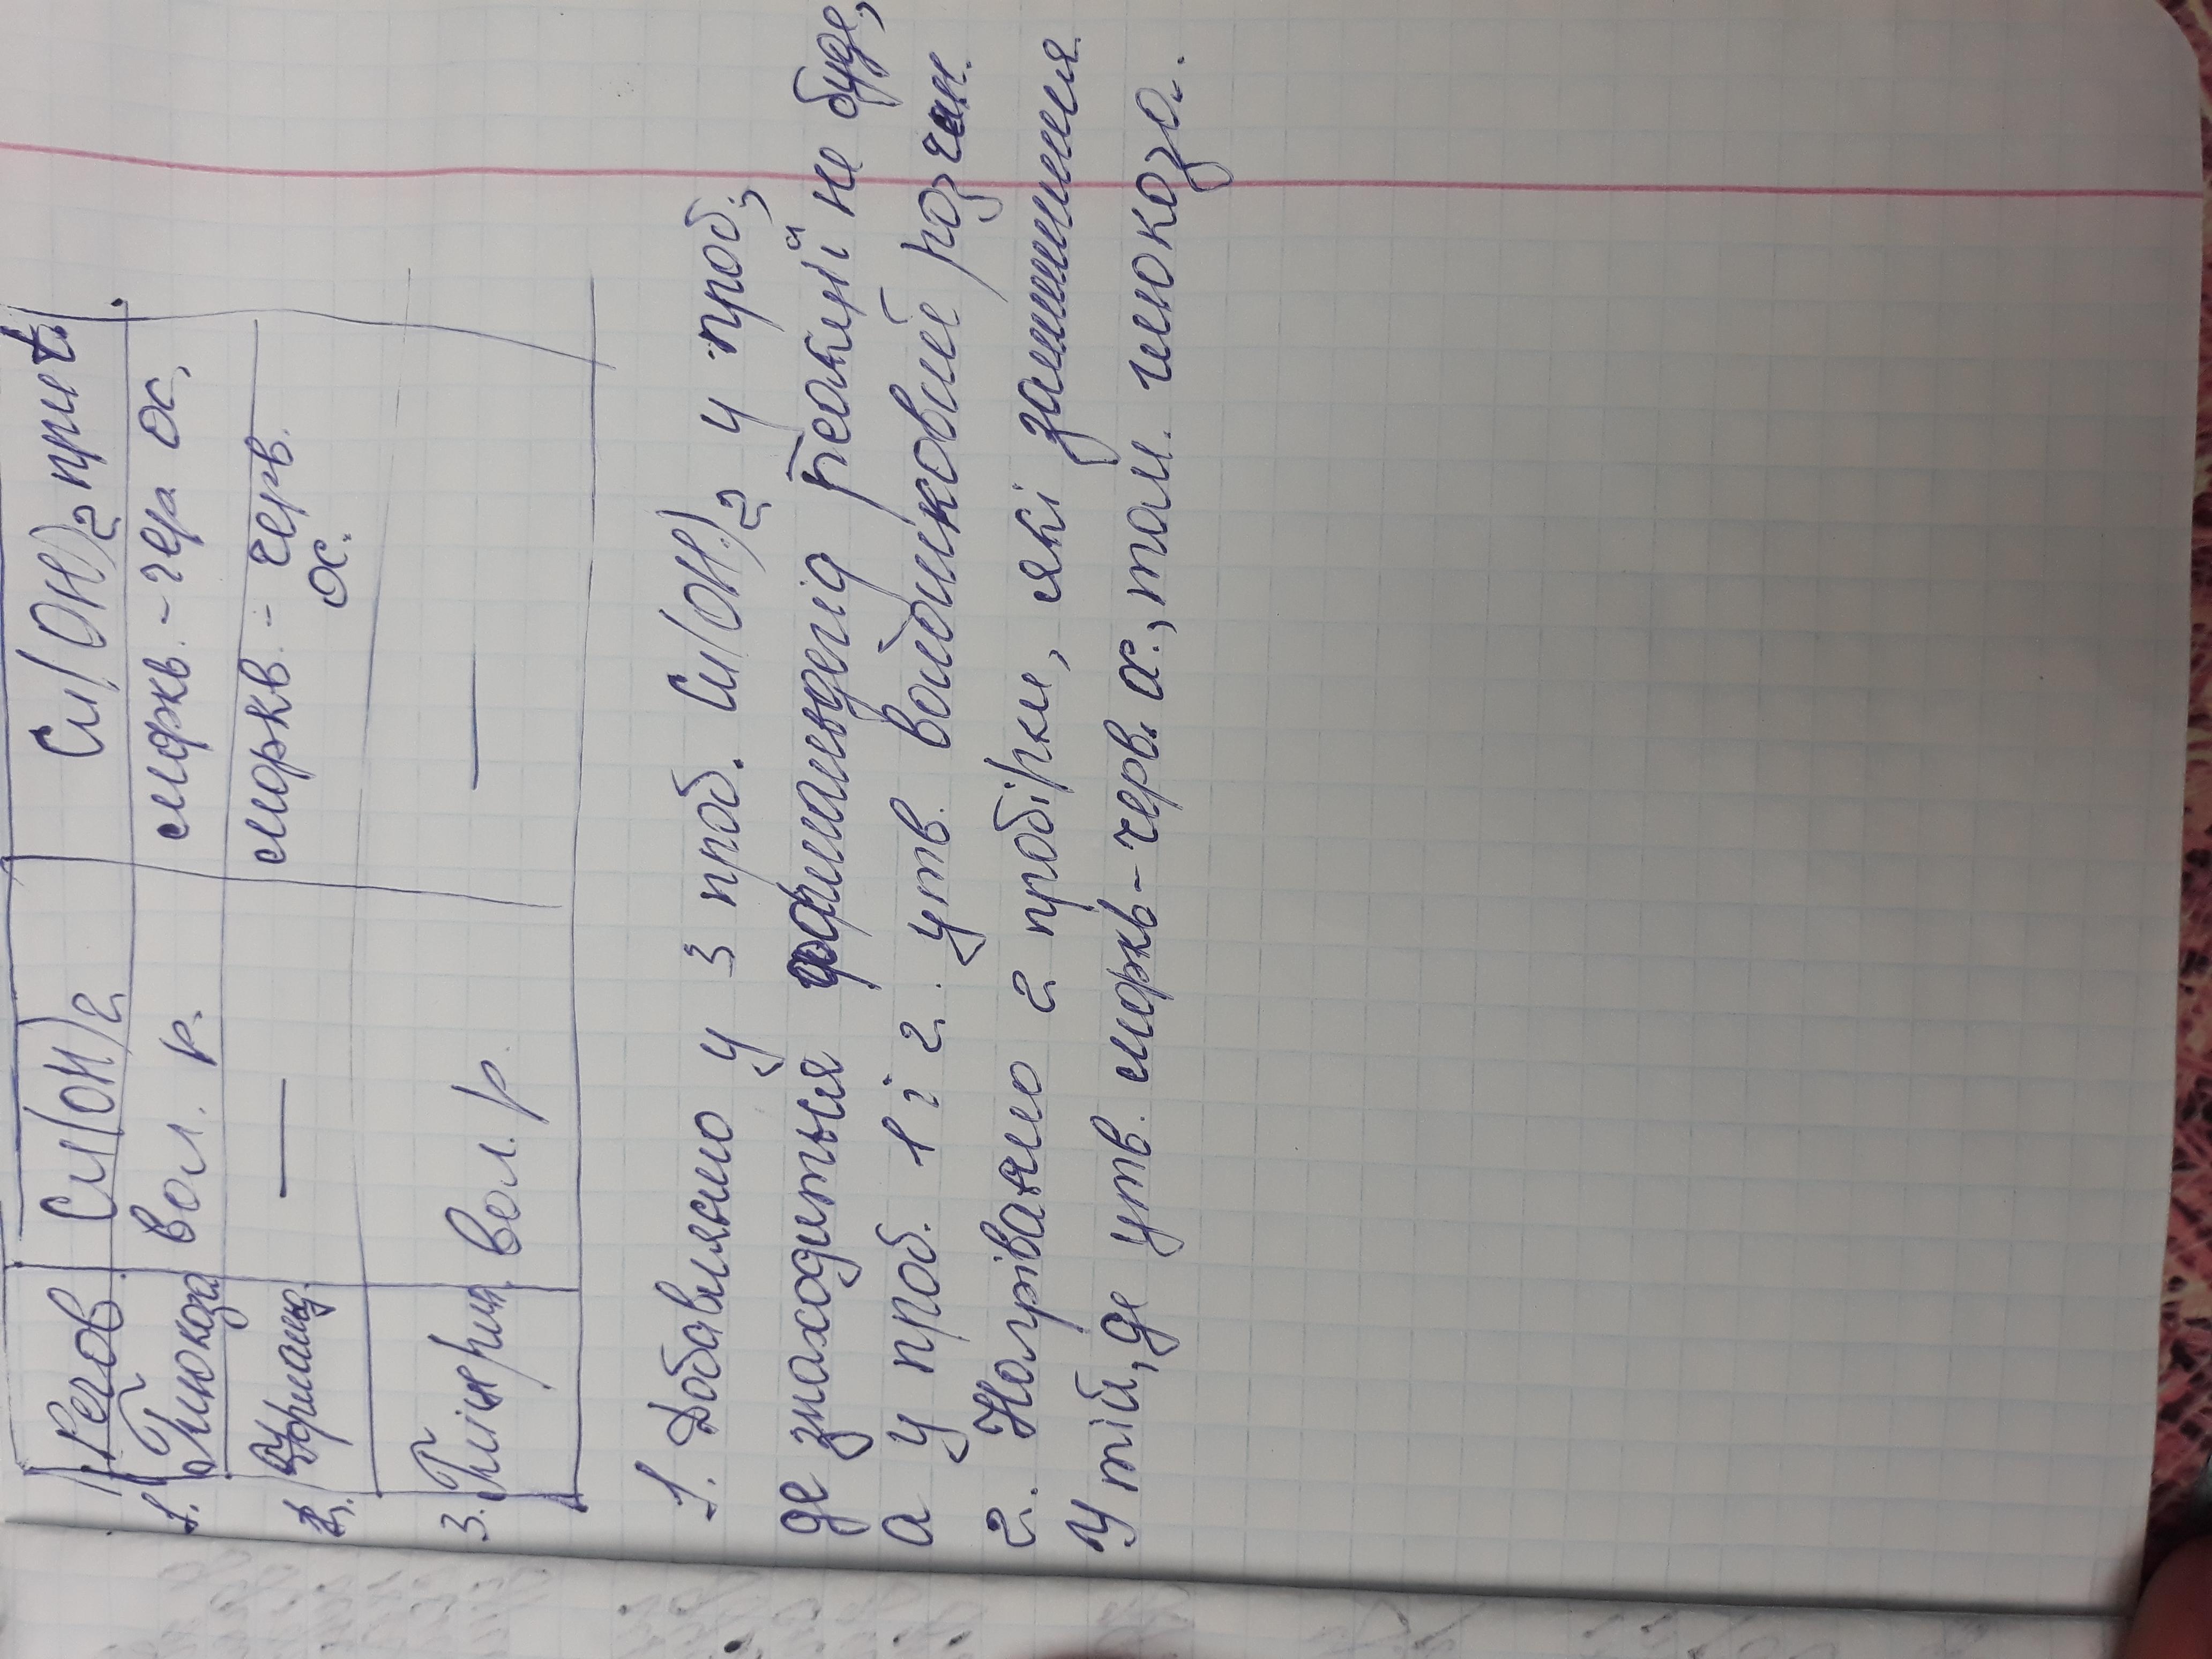 Речов. Cu(OH)2 Cu(OH)2 при t.
1. Глюкоза вол. р.моркв. - чер ос,
2. Формальд. — моркв. - черв.
ос.
3. Гліцерин вол. р. —
1. Добавляємо у 3 проб. Cu(OH)2 у проб,
де знаходиться формальдегід реакції не буде,
а у проб. 1 і 2. утв. волошковий розчин.
2. Нагріваємо 2 пробірки, які залишилися
У тій, де утв. моркв-черв. ос., там. глюкоза.